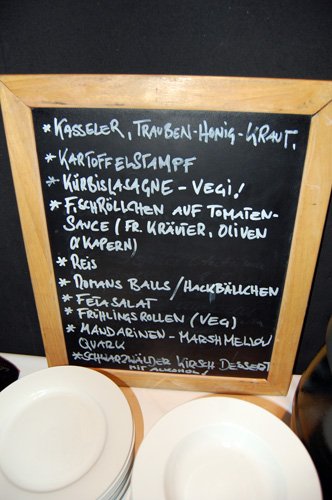 * KASSELER, TRAUBEN-HONIG-KRAUT,
* KARTOFFELSTAMPF
* KÜRBISLASAGNE - VEGI!
* FISCHRÖLLCHEN AUF TOMATEN-
SAUCE (FR. KRÄUTER, OLIVEN
& KAPERN)
* REIS
* ROMANS BALLS / HACKBÄLLCHEN
* FETASALAT
* FRÜHLINGSROLLEN (VEG)
* MANDARINEN - MARSHMELLOW
QUARK
* SCHWARZWÄLDER KIRSCH DESSERT
MIT ALKOHOL!